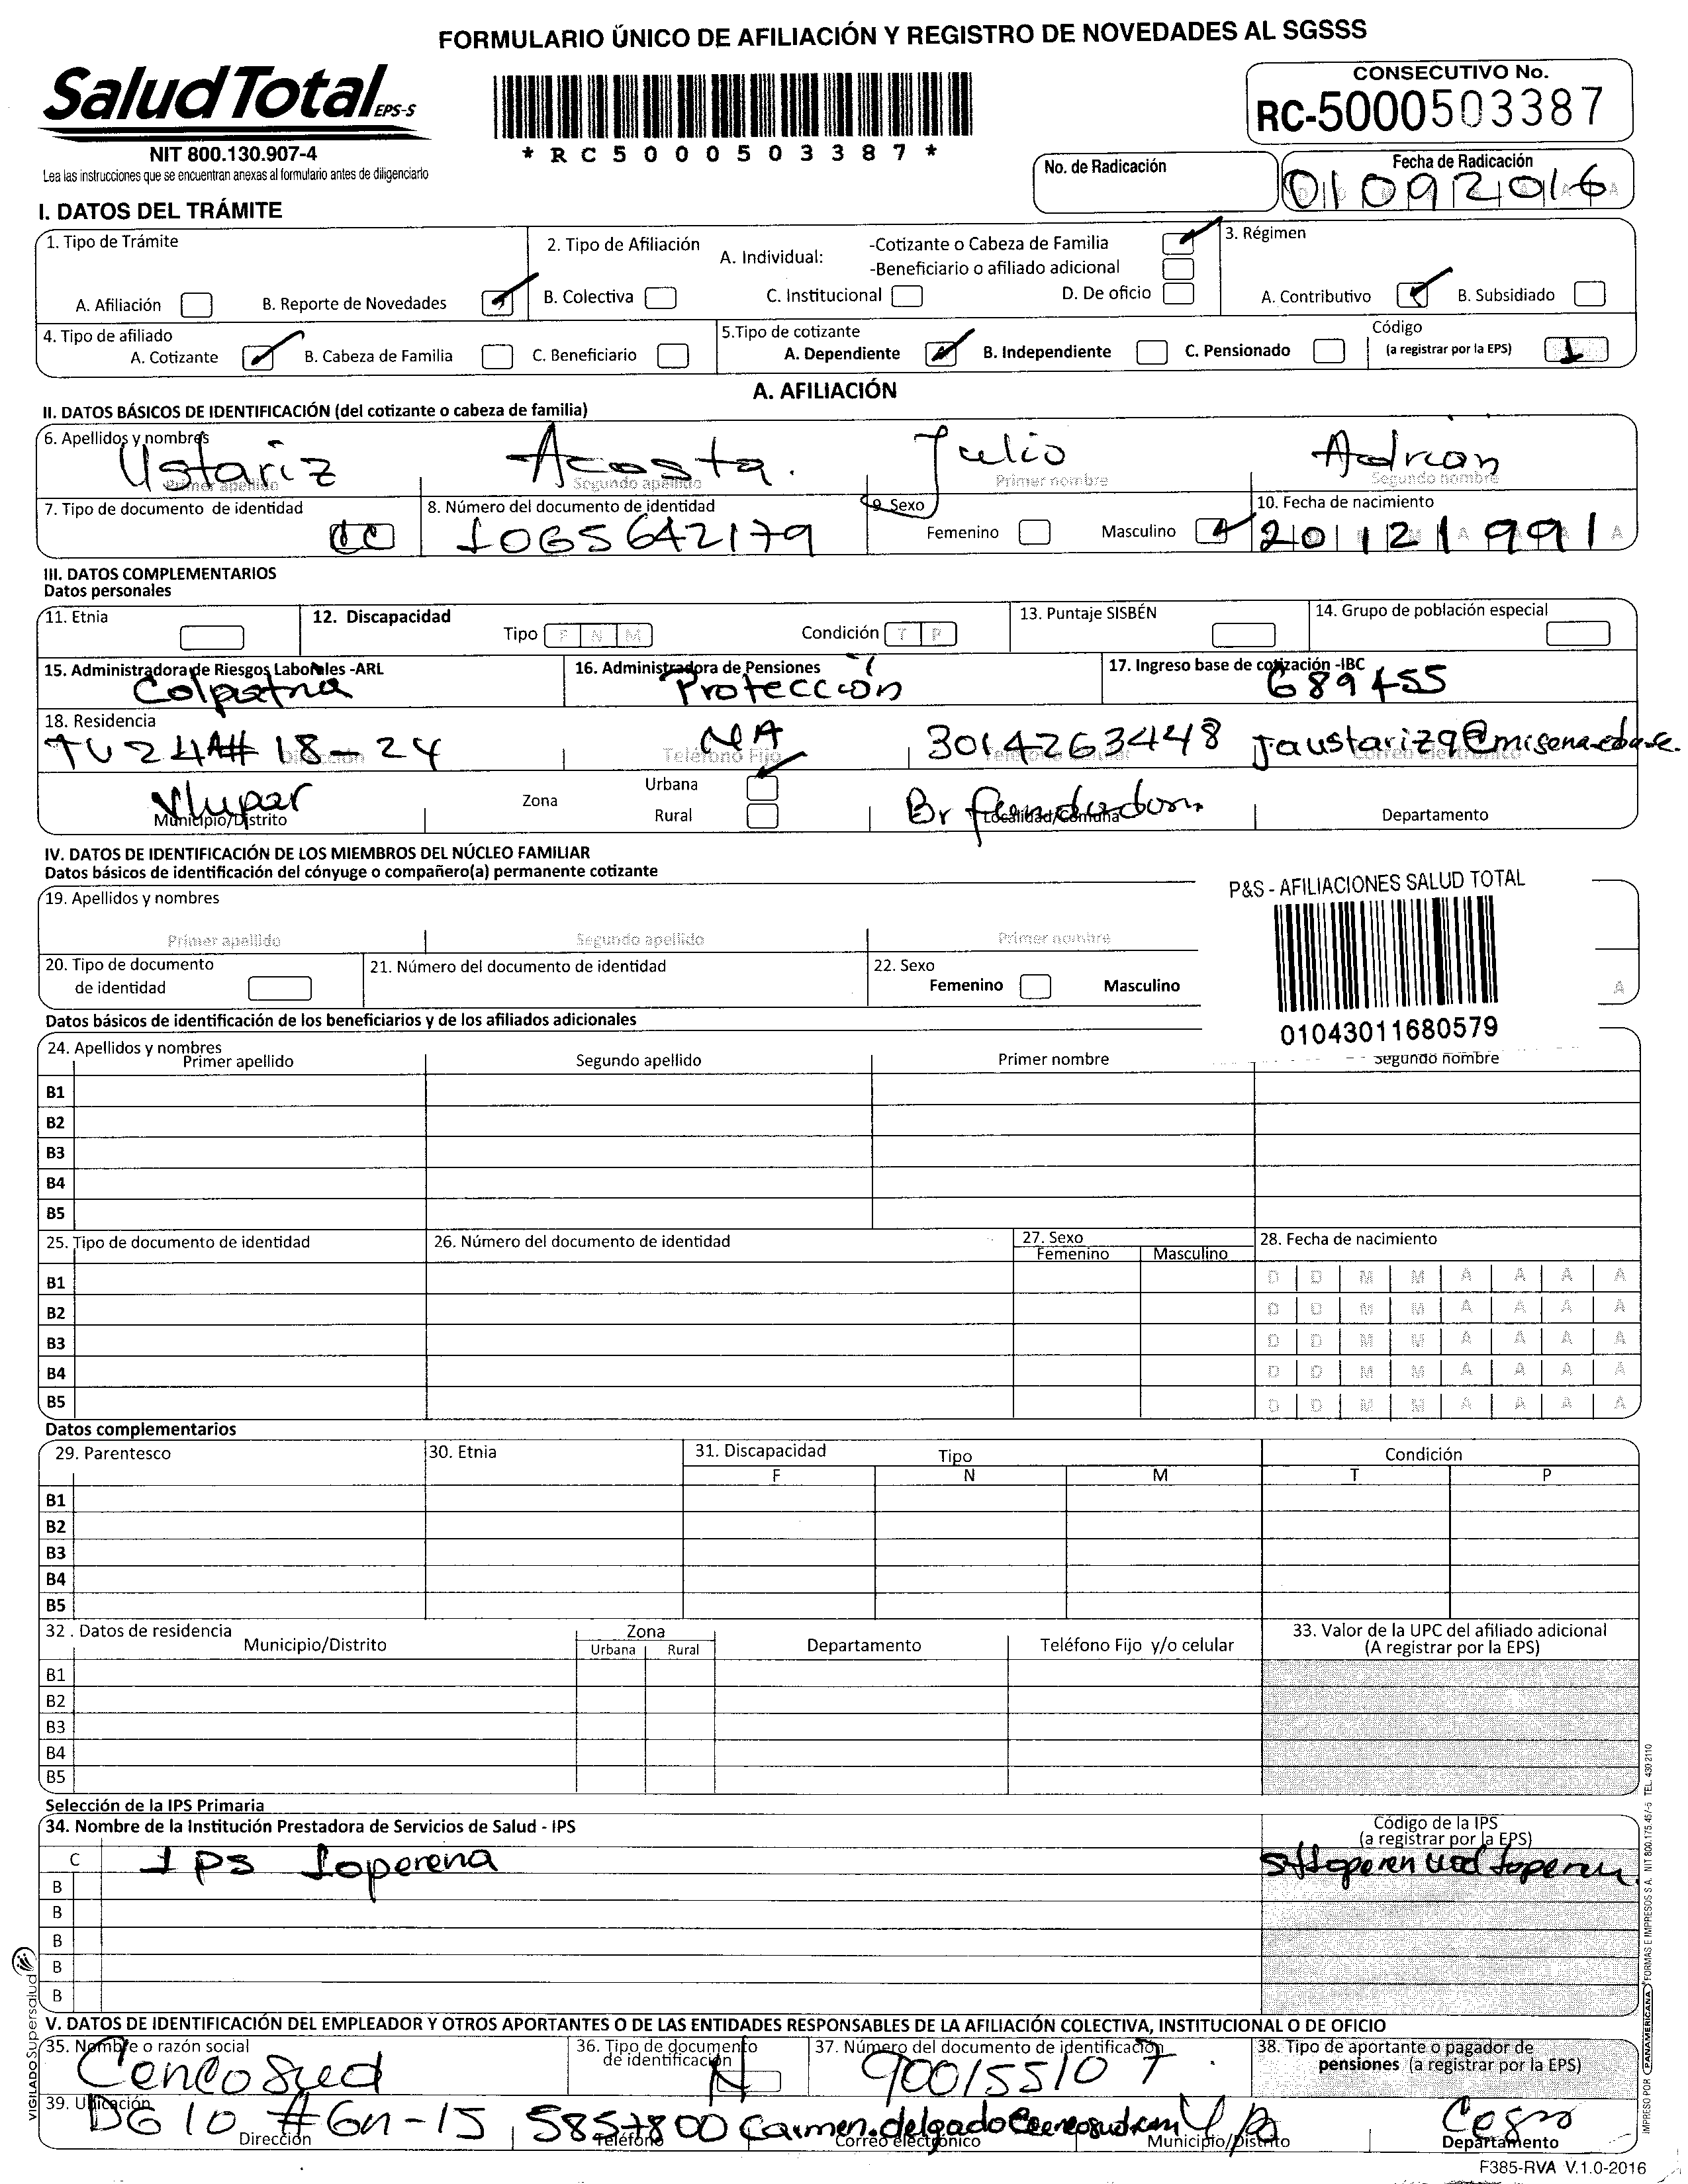 FORMULARIO ÚNICO DE AFILIACIÓN Y REGISTRO DE NOVEDADES AL SGSSS
SaludTotal EPS-S
NIT 800.130.907-4
Lea las instrucciones que se encuentran anexas al formulario antes de diligenciarlo
*RC5000503387*
CONSECUTIVO No.
RC-5000503387
No. de Radicación
Fecha de Radicación
01092016
I. DATOS DEL TRÁMITE
1. Tipo de Trámite
A. Afiliación B. Reporte de Novedades
2. Tipo de Afiliación A. Individual: -Cotizante o Cabeza de Familia
-Beneficiario o afiliado adicional
B. Colectiva C. Institucional D. De oficio
3. Régimen
A. Contributivo B. Subsidiado
4. Tipo de afiliado
A. Cotizante B. Cabeza de Familia C. Beneficiario
5.Tipo de cotizante
A. Dependiente B. Independiente C. Pensionado
Código
(a registrar por la EPS) 1
A. AFILIACIÓN
II. DATOS BÁSICOS DE IDENTIFICACIÓN (del cotizante o cabeza de familia)
6. Apellidos y nombres
Ustariz Acosta. Julio Adrian
Primer apellido Segundo apellido Primer nombre Segundo nombre
7. Tipo de documento de identidad
CC
8. Número del documento de identidad
1065642179
9. Sexo
Femenino Masculino
10. Fecha de nacimiento
20121991
III. DATOS COMPLEMENTARIOS
Datos personales
11. Etnia
12. Discapacidad
Tipo F N M Condición T P
13. Puntaje SISBÉN
14. Grupo de población especial
15. Administradora de Riesgos Laborales -ARL
Colpatria
16. Administradora de Pensiones
Protección
17. Ingreso base de cotización -IBC
689455
18. Residencia
TV 24A# 18-24 NA 3014263448
Dirección Teléfono Fijo Teléfono Celular Correo electrónico
Vlupar
Municipio/Distrito
Zona
Urbana
Rural
Br fundadores
Localidad/Comuna
Departamento
IV. DATOS DE IDENTIFICACIÓN DE LOS MIEMBROS DEL NÚCLEO FAMILIAR
Datos básicos de identificación del cónyuge o compañero(a) permanente cotizante
P&S - AFILIACIONES SALUD TOTAL
01043011680579
19. Apellidos y nombres
Primer apellido Segundo apellido Primer nombre
20. Tipo de documento
de identidad
21. Número del documento de identidad
22. Sexo
Femenino Masculino
A
Datos básicos de identificación de los beneficiarios y de los afiliados adicionales
24. Apellidos y nombres
Primer apellido Segundo apellido Primer nombre Segundo nombre
B1
B2
B3
B4
B5
25. Tipo de documento de identidad 26. Número del documento de identidad 27. Sexo 28. Fecha de nacimiento
Femenino Masculino
B1 D D M M A A A A
B2 D D M M A A A A
B3 D D M M A A A A
B4 D D M M A A A A
B5 D D M M A A A A
Datos complementarios
29. Parentesco 30. Etnia 31. Discapacidad Tipo Condición
F N M T P
B1
B2
B3
B4
B5
32 . Datos de residencia
Municipio/Distrito Zona Departamento Teléfono Fijo y/o celular
Urbana Rural
33. Valor de la UPC del afiliado adicional
(A registrar por la EPS)
B1
B2
B3
B4
B5
Selección de la IPS Primaria
34. Nombre de la Institución Prestadora de Servicios de Salud - IPS
Código de la IPS
(a registrar por la EPS)
C Ips Loperena
B
B
B
B
B
V. DATOS DE IDENTIFICACIÓN DEL EMPLEADOR Y OTROS APORTANTES O DE LAS ENTIDADES RESPONSABLES DE LA AFILIACIÓN COLECTIVA, INSTITUCIONAL O DE OFICIO
35. Nombre o razón social
Cencosud
36. Tipo de documento
de identificación
N
37. Número del documento de identificación
900155107
38. Tipo de aportante o pagador de
pensiones (a registrar por la EPS)
39. Ubicación
DG 10 #6N-15 5857800 Carmen.delgado@cencosud.com Vpar Cesar
Dirección Teléfono Correo electrónico Municipio/Distrito Departamento
F385-RVA V.1.0-2016
VIGILADO Supersalud
IMPRESO POR PANAMERICANA FORMAS E IMPRESOS S.A. NIT 800.175.457-5 TEL. 4302110